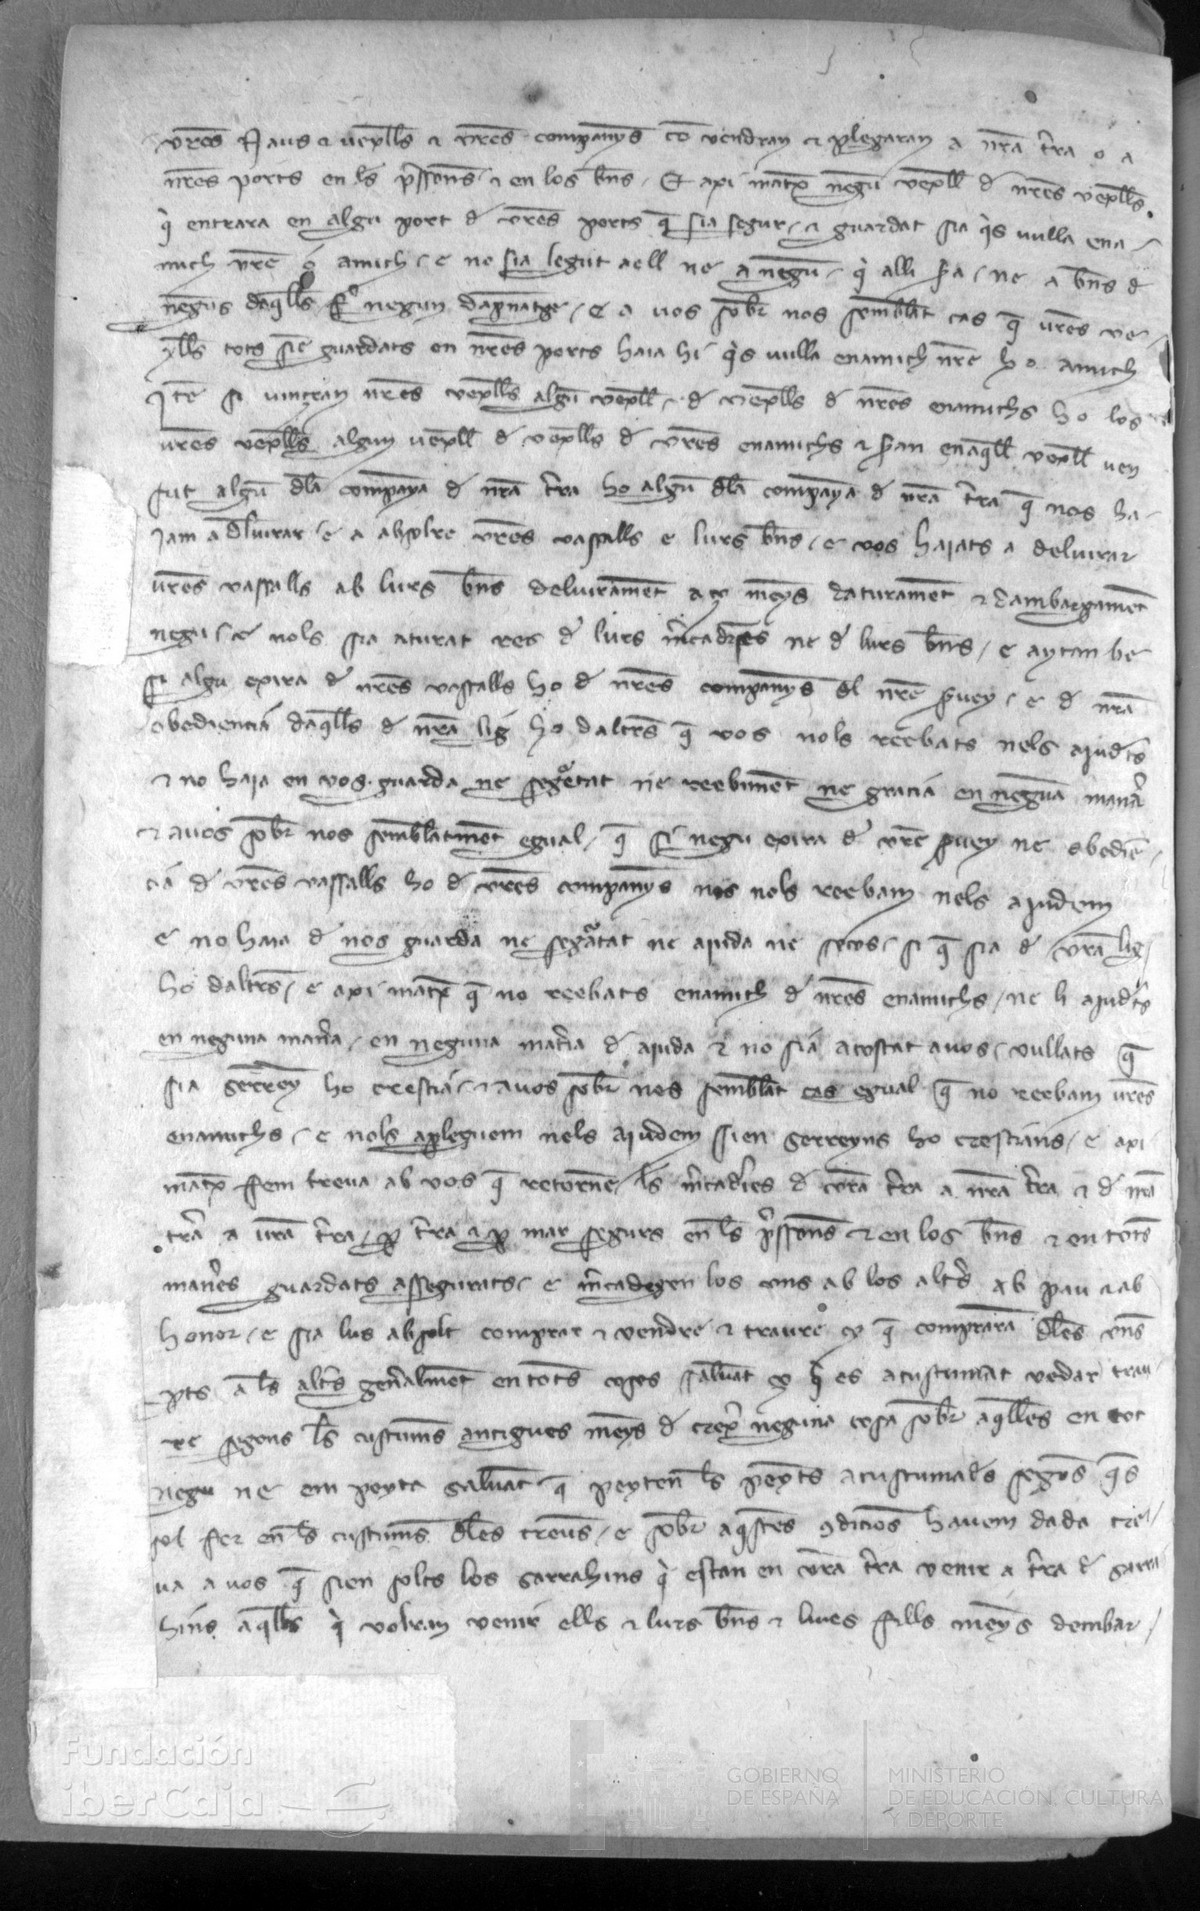 vr̃es Naus ⁊ uexells ⁊ vr̃es companys cõ vendran ⁊ plegaran a nr̃a tr̃a o a
nr̃es ports en ls p̃ssones ⁊ en los bñs. Et axi matex negũ vexell d nr̃es vexells
q̃ entrara en algu port d vr̃es ports q̃ sia segur ⁊ guardat sia q̃s vulla ena
mich vr̃e o amich e no sia legut a ell ne a negũ q̃ alli sia ne a bñs d
negus daq̃lls negun dapnatge e a vos sobr̃ nos semblãt cas q̃ vr̃es ve
xells tots sie guardats en nr̃es ports haia hi q̃s vulla enamich nr̃e ho amich
Itẽ si vinçran nr̃es vexells algũ vexell d vexells d nr̃es enamichs ho los
vr̃es vexells algun uexell d vexells d vr̃es enamichs ⁊ sian enaq̃ll vexell ven
sut algũ dla companya d nr̃a tr̃a ho algũ dla companya d nr̃a tr̃a q̃ nos ha
iam a dliurar e a absolre vr̃es vassalls e lurs bñs e vos haiats a deliurar
ur̃es vassalls ab lurs bñs deliuramẽt aço mẽys daturamẽt ⁊ dambargamẽt
negu e nols sia aturat res d lurs mercad̃ies ne d lurs bñs e aytan be
si algu exira d nr̃es vassalls ho d nr̃es companys dl nr̃e s̃uey e d nr̃a
obediencia daq̃lls d nr̃a lig ho daltres q̃ vos nols reebats nels aiudets
⁊ no haia en vos guarda ne seguretat ne reebimẽt ne gracia en neguna manr̃a
⁊ avos sobr̃ nos semblãtmẽt egual q̃ si negu exira d vr̃e s̃uey ne obediẽ
cia d vr̃es vassalls ho d vr̃es companys nos nols reebam nels aiudem
e no haia d nos guarda ne seguretat ne aiuda ne secos si q̃ sia d vr̃a lig
ho daltres e axi matex q̃ no reebats enamich d nr̃es enamichs ne li aiudets
en neguna manr̃a en neguna matr̃ia d aiuda ⁊ no sia acostat avos vullats q̃
sia serrey ho crestia ⁊ avos sobr̃ nos semblãt cas egual q̃ no reebam ur̃es
enamichs e nols apleguem nels aiudem sien serreyns ho crestians e axi
matex fem treva ab vos q̃ retornẽ ls mercad̃ies d vr̃a tr̃a a nr̃a tr̃a ⁊ d nr̃a
tr̃a a ur̃a tr̃a p tr̃a ⁊ p mar segurs en ls p̃ssones ⁊ en los bñs ⁊ en totes
manr̃es guardats assegurats e mercadegen los uns ab los altr̃s ab pau ⁊ ab
honor e sia lus absolt comprar ⁊ vendre ⁊ traure ço q̃ compraran dles unes
pts a ls altr̃s gen̄alment en totes coses salvãt ço q̃ es acustumat vedar trau
re segons ls custumes antigues mẽys d crexr̃ neguna cosa sobr̃ aq̃lles en tot
negu ne em peyta salvãt q̃ peyten ls peyts acustumades segons q̃s
sol fer en ls custumes dles treues e sobr̃ aq̃stes ꝯdicions havem dada tre
ua avos q̃ sien solts los sarrahins q̃ estan en vr̃a tr̃a venir a tr̃a d sarra
hins aq̃lls q̃ volran venir ells ⁊ lurs bñs ⁊ lures fills mẽys dembar
Fundación
iberCaja
GOBIERNO
DE ESPAÑA
MINISTERIO
DE EDUCACIÓN, CULTURA
Y DEPORTE